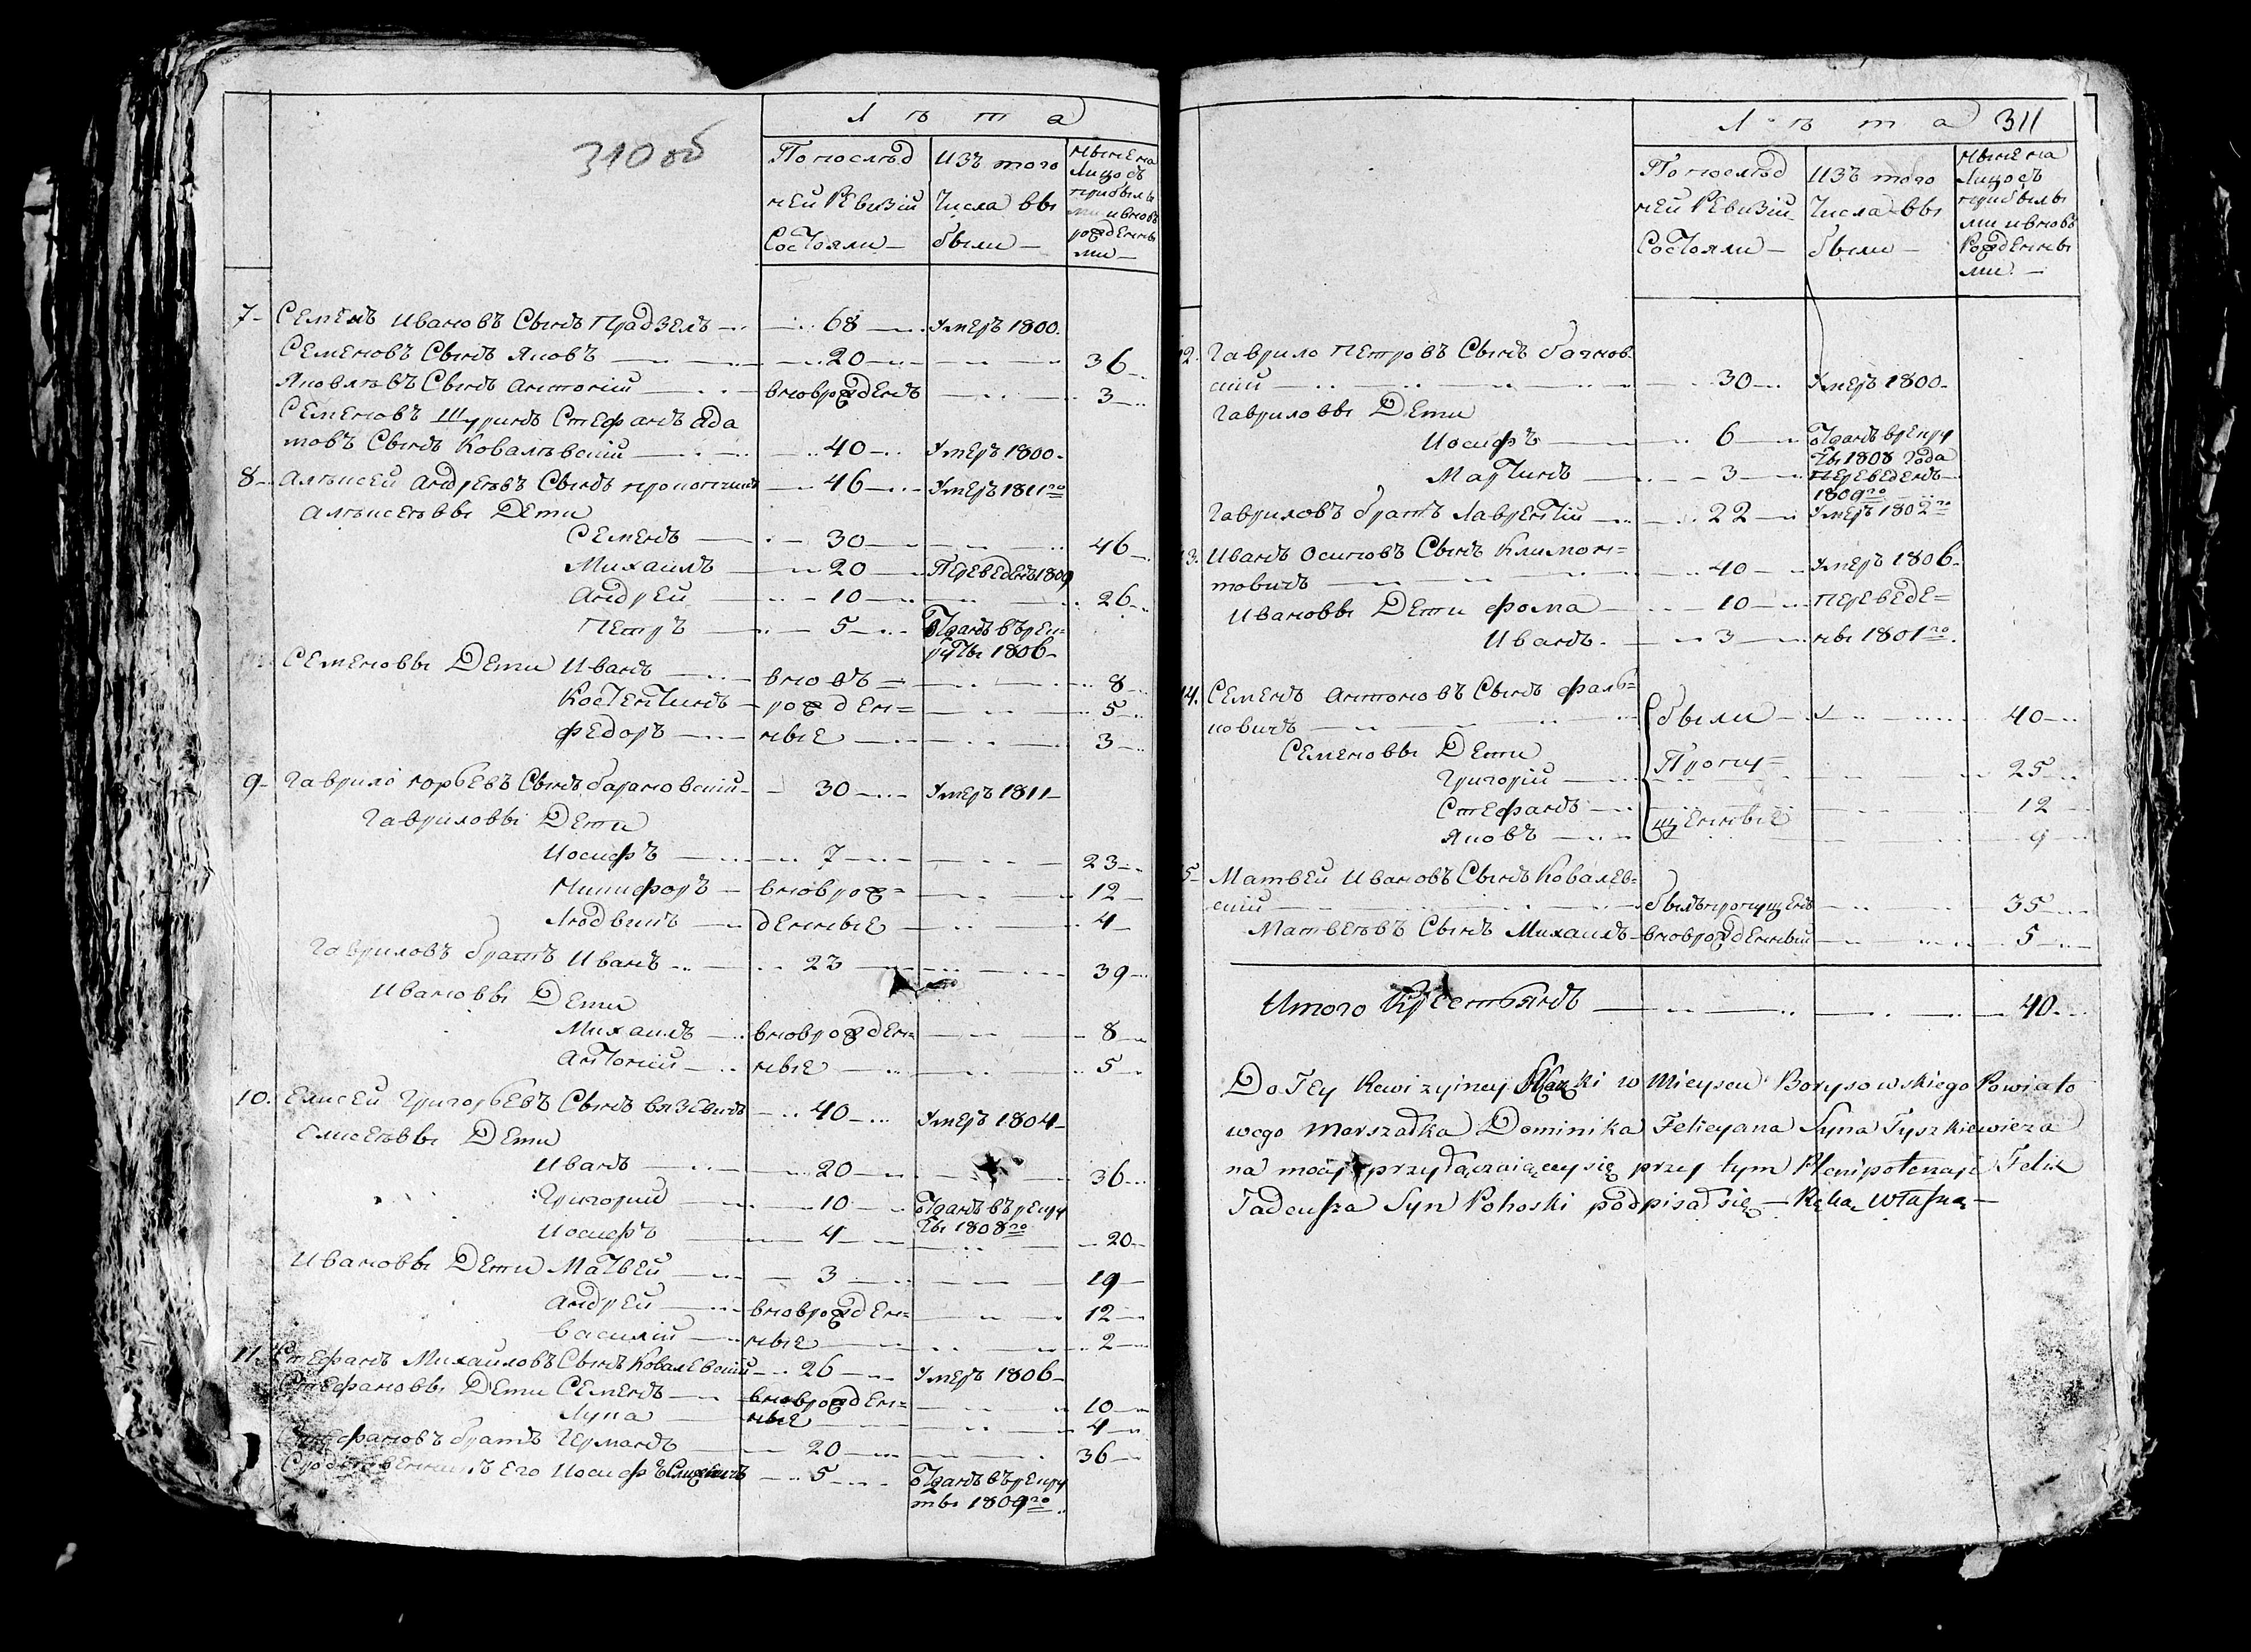 310 об
Лѣта
По послѣд
ней Ревизіи
Состояли
Изъ того
Числа вы
были
Ныне на
лицо съ
прибылы
ми и вновь
рожденны
ми
7 Семенъ Ивановъ Сынъ Прадзелъ 68 умеръ 1800.
Семеновъ Сынъ Яковъ 20 36
Яковлѣвъ Сынъ Антоній вноврожденъ 3
Семеновъ Шуринъ Стефанъ Ада
мовъ Сынъ Ковалѣвскій 40 умеръ 1800.
8 Алѣксей Андрѣевъ Сынъ 46 умеръ 1811го
Алѣксеѣвы Дети
Семенъ 30 46
Михаилъ 20 Переведенъ 1809
Андрей 10 26
Петръ 5 Отданъ въ рек=
руты 1806
Семеновы Дети Иванъ вновъ= 8
Костентинъ рожден= 5
Федоръ ные 3
9 Гаврило Юрьевъ Сынъ Барановскій 30 умеръ 1811
Гавриловы Дети
Иосифъ 7 23
Никифоръ вноврож= 12
Людвикъ денные 4
Гавриловъ братъ Иванъ 23 39
Ивановы Дети
Михаилъ вноврожден= 8
Антоній ные 5
10. Елисей Григорьевъ Сынъ Вязевичъ 40 умеръ 1804
Елисеѣвы Дети
Иванъ 20 36
Григорій 10 Отданъ въ рекру
ты 1808го
Иосифъ 4 20
Ивановы Дети Матвей 3 19
Андрей вноврожден= 12
Василій ные 2
11. Стефанъ Михаиловъ Сынъ Ковалевскій 26 умеръ 1806
Стефановы Дети Семенъ вноврожден= 10
Лука ные 4
Стефановъ братъ Германъ 20 36
Сродственникъ Его Иосифъ 5 Отданъ въ рекру
ты 1809го
Лѣта 311
По послѣд
ней Ревизіи
Состояли
Изъ того
Числа вы
были
Ныне на
Лицо съ
прибылы
ми и вновъ
Рожденны
ми
12. Гаврило Петровъ Сынъ Бачков
скій 30 умеръ 1800
Гавриловы Дети
Иосифъ 6 Отданъ в рекру
ты 1808 Года
Мартинъ 3 Переведенъ
1809го
Гавриловъ братъ Лаврентій 22 умеръ 1802го
13. Иванъ Осиповъ Сынъ Климон=
товичъ 40 умеръ 1806
Ивановы Дети Фома 10 переведе=
Иванъ 3 ны 1801го
14. Семенъ Антоновъ Сынъ Фаль=
ковичъ были 40
Семеновы Дети
Григорій Пропу= 25
Стефанъ 12
Яковъ щенные 9
15 Матвей Ивановъ Сынъ Ковалев=
скій былъ пропущенъ 35
Матвеѣвъ Сынъ Михаилъ вноврожденный 5
Итого Крестьянъ 40
Do Tey Rewizyiney Skazki w Mieyscu Borysowskiego Powiato
wego Marszałka Dominika Felicyana Syna Tyszkiewicza
na mocy przyłączaiącey się przy tym Plenipotencyi Felix
Tadeusza Syn Pohoski podpisał się Ręką Własną